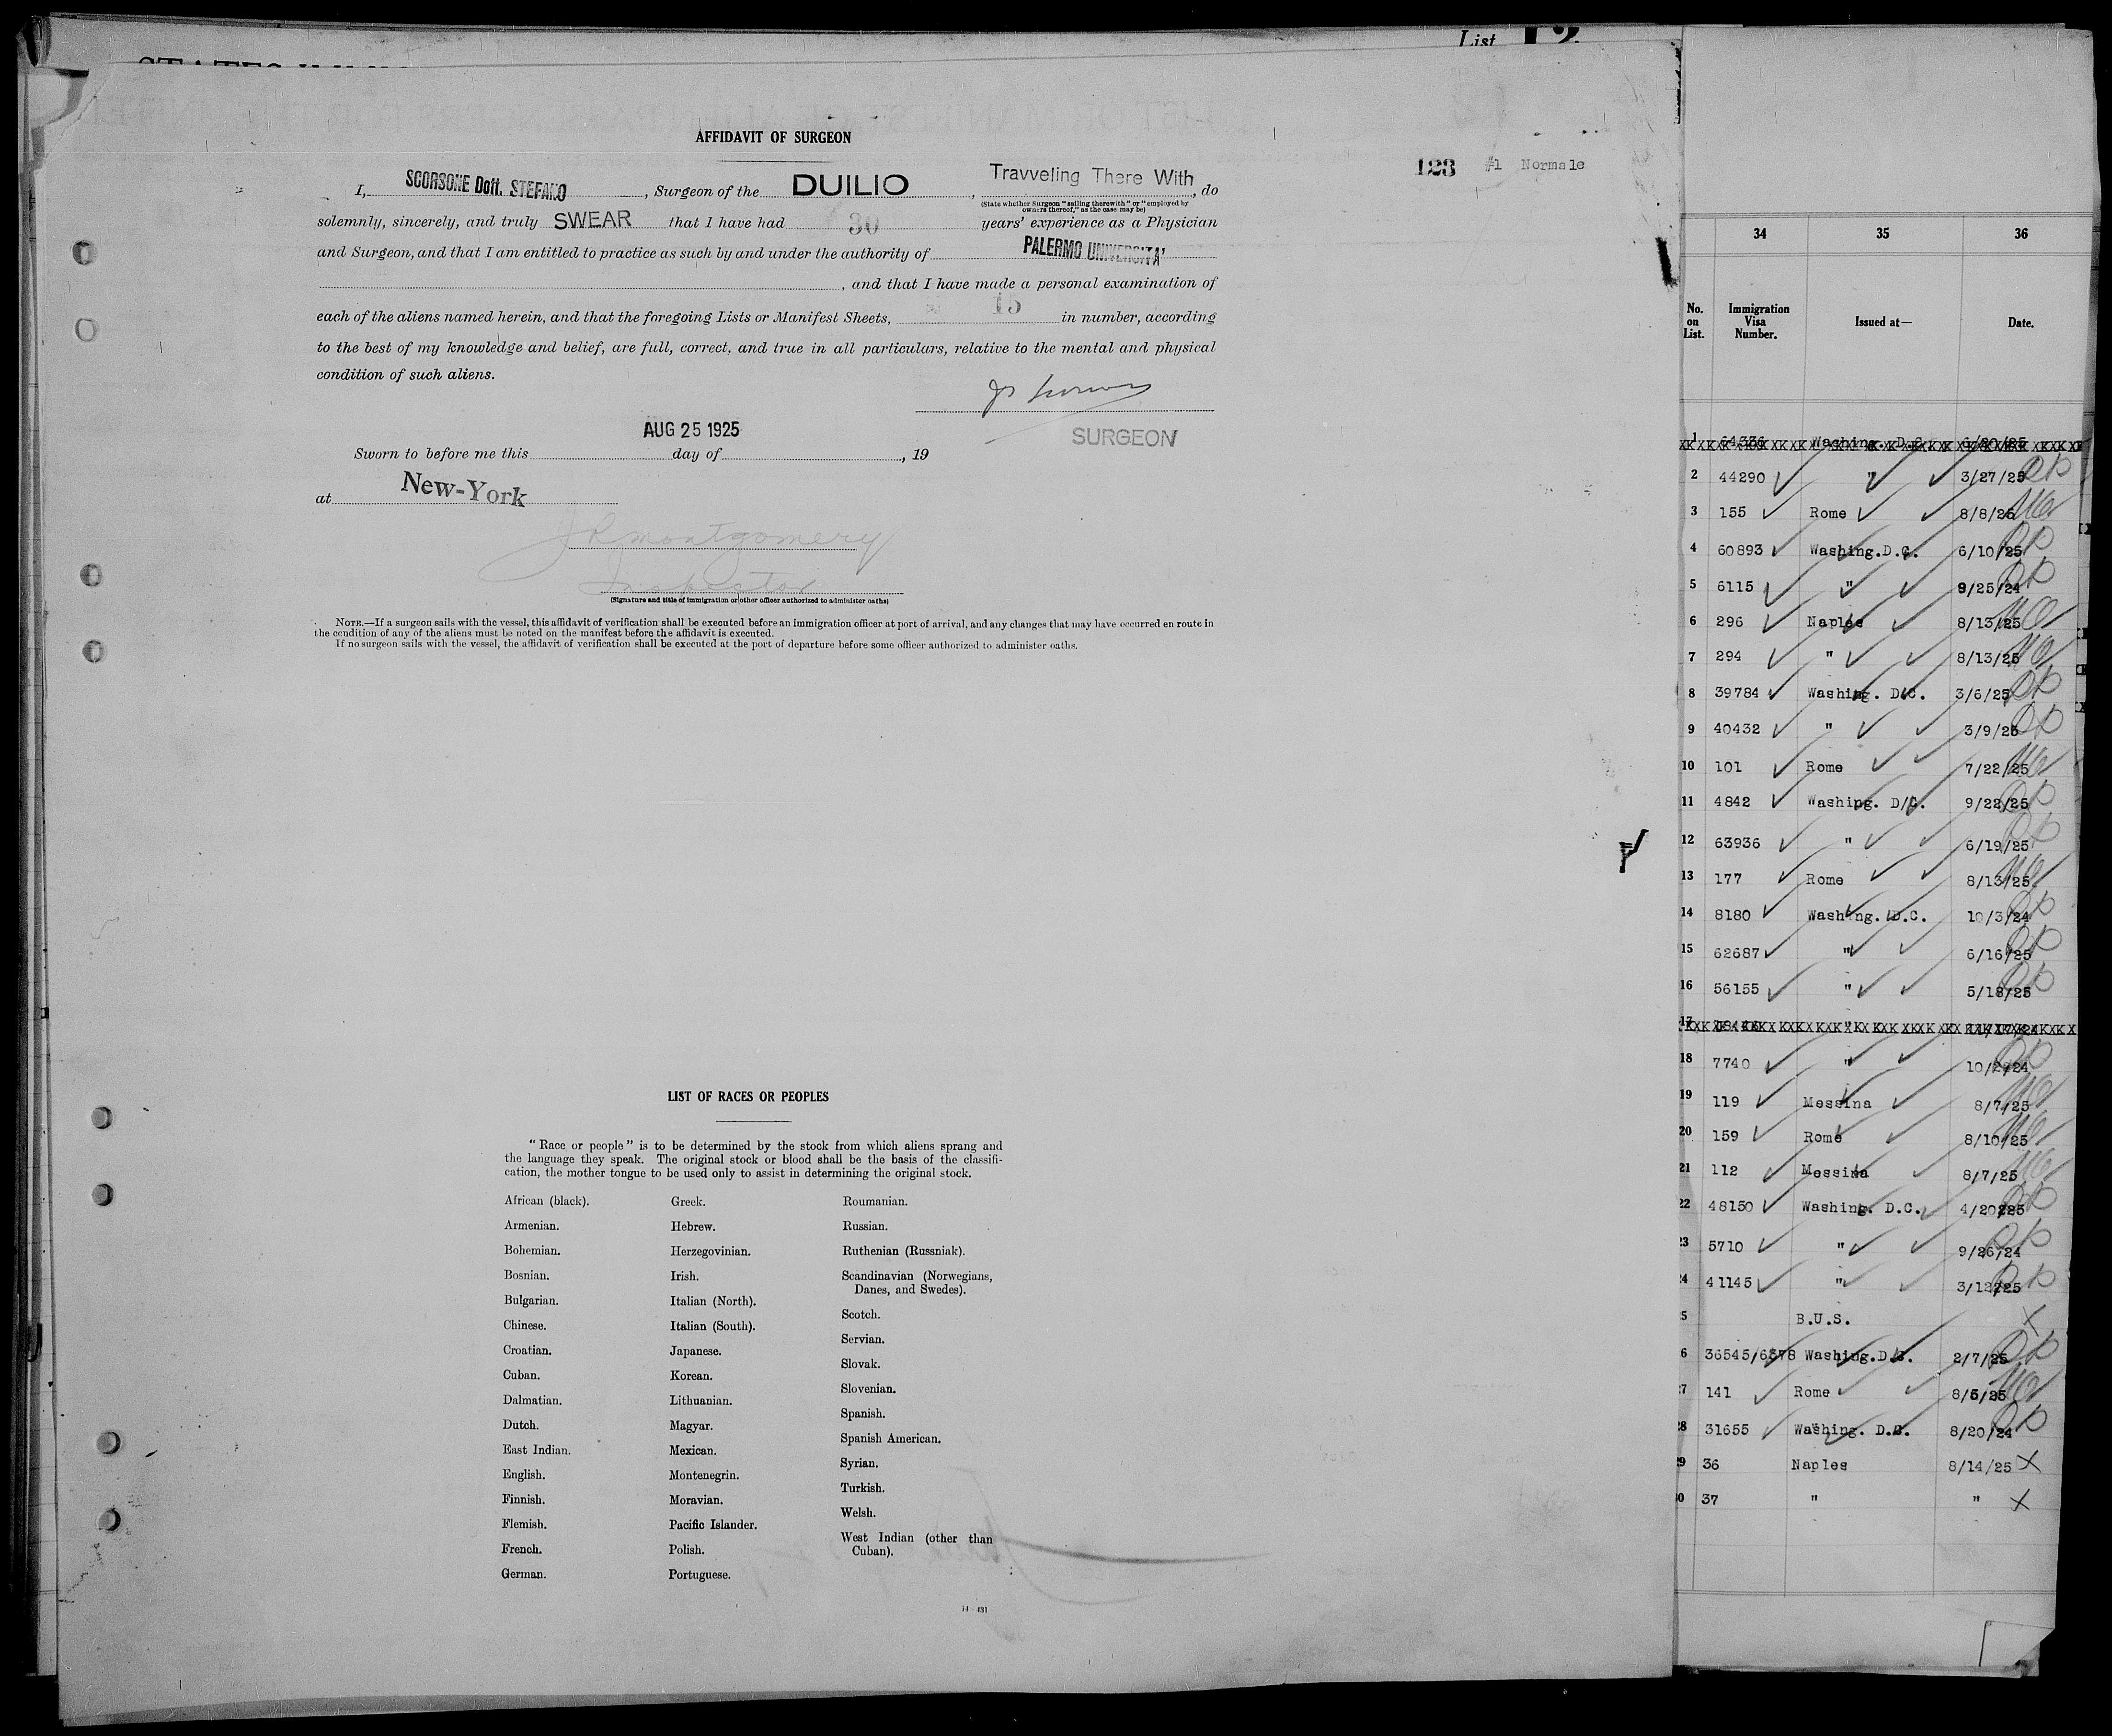 List 12
AFFIDAVIT OF SURGEON
123 #1 Normale
I, SCORSONE Dott. STEFANO, Surgeon of the DUILIO, Travveling There With, do
(State whether Surgeon "sailing therewith" or "employed by
owners thereof," as the case may be)
solemnly, sincerely, and truly SWEAR that I have had 30 years' experience as a Physician
and Surgeon, and that I am entitled to practice as such by and under the authority of PALERMO UNIVERSITA'
, and that I have made a personal examination of
each of the aliens named herein, and that the foregoing Lists or Manifest Sheets, 15 in number, according
to the best of my knowledge and belief, are full, correct, and true in all particulars, relative to the mental and physical
condition of such aliens.
SURGEON
AUG 25 1925
Sworn to before me this day of , 19
at New-York
J R Montgomery
Inspector
(Signature and title of immigration or other officer authorized to administer oaths)
NOTE.—If a surgeon sails with the vessel, this affidavit of verification shall be executed before an immigration officer at port of arrival, and any changes that may have occurred en route in
the condition of any of the aliens must be noted on the manifest before the affidavit is executed.
If no surgeon sails with the vessel, the affidavit of verification shall be executed at the port of departure before some officer authorized to administer oaths.
LIST OF RACES OR PEOPLES
"Race or people" is to be determined by the stock from which aliens sprang and
the language they speak. The original stock or blood shall be the basis of the classifi-
cation, the mother tongue to be used only to assist in determining the original stock.
African (black).
Armenian.
Bohemian.
Bosnian.
Bulgarian.
Chinese.
Croatian.
Cuban.
Dalmatian.
Dutch.
East Indian.
English.
Finnish.
Flemish.
French.
German.
Greek.
Hebrew.
Herzegovinian.
Irish.
Italian (North).
Italian (South).
Japanese.
Korean.
Lithuanian.
Magyar.
Mexican.
Montenegrin.
Moravian.
Pacific Islander.
Polish.
Portuguese.
Roumanian.
Russian.
Ruthenian (Russniak).
Scandinavian (Norwegians,
Danes, and Swedes).
Scotch.
Servian.
Slovak.
Slovenian.
Spanish.
Spanish American.
Syrian.
Turkish.
Welsh.
West Indian (other than
Cuban).
34 35 36
No. on List. Immigration Visa Number. Issued at— Date.
1 64336 Washing. D.C. 6/20/25
2 44290 " 3/27/25
3 155 Rome 8/8/25
4 60893 Washing.D.C. 6/10/25
5 6115 " 9/25/24
6 296 Naples 8/13/25
7 294 " 8/13/25
8 39784 Washing. D.C. 3/6/25
9 40432 " 3/9/25
10 101 Rome 7/22/25
11 4842 Washing. D/C. 9/22/25
12 63936 " 6/19/25
13 177 Rome 8/13/25
14 8180 Washing. D.C. 10/3/24
15 62687 " 6/16/25
16 56155 " 5/18/25
17 "
18 7740 " 10/2/24
19 119 Messina 8/7/25
20 159 Rome 8/10/25
21 112 Messina 8/7/25
22 48150 Washing. D.C. 4/20/25
23 5710 " 9/26/24
4 41145 " 3/12/25
5 B.U.S.
6 36545/6578 Washing.D.C. 2/7/25
27 141 Rome 8/5/25
28 31655 Washing. D.C. 8/20/24
29 36 Naples 8/14/25 X
0 37 " " X